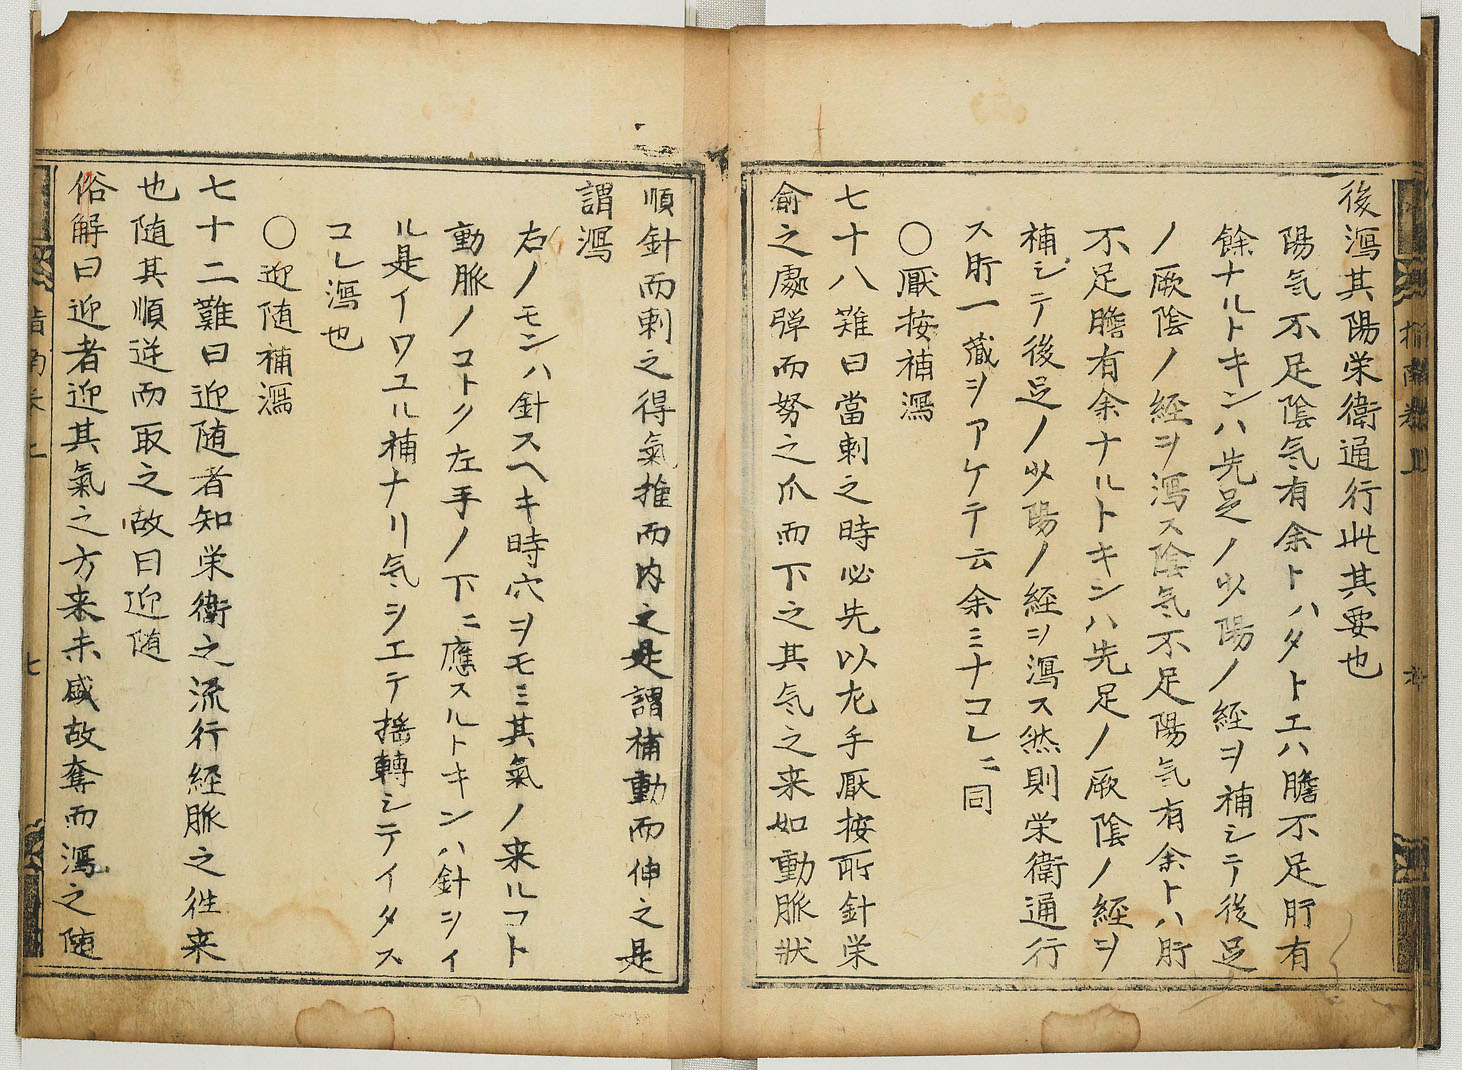 後瀉其陽栄衛通行此其要也
陽気不足陰気有余トハタトエハ膽不足肝有
餘ナルトキンハ先足ノ少陽ノ経ヲ補シテ後足
ノ厥陰ノ経ヲ瀉ス陰気不足陽気有余トハ肝
不足膽有余ナルトキンハ先足ノ厥陰ノ経ヲ
補シテ後足ノ少陽ノ経ヲ瀉ス然則栄衛通行
ス肝一蔵ヲアケテ云余ミナコレニ同
〇厭按補瀉
七十八難曰當刺之時必先以左手厭按所針栄
俞之處弾而努之爪而下之其気之来如動脈状
順針而刺之得氣推而内之是謂補動而伸之是
謂瀉
右ノモンハ針スヘキ時穴ヲモミ其氣ノ来ルコト
動脈ノコトク左手ノ下ニ應スルトキンハ針シイ
ル是イワユル補ナリ気ヲエテ揺轉シテイタス
コレ瀉也
〇迎随補瀉
七十二難曰迎随者知栄衛之流行経脈之往来
也随其順逆而取之故曰迎随
俗解曰迎者迎其氣之方来未盛故奪而瀉之随
指南巻上
七